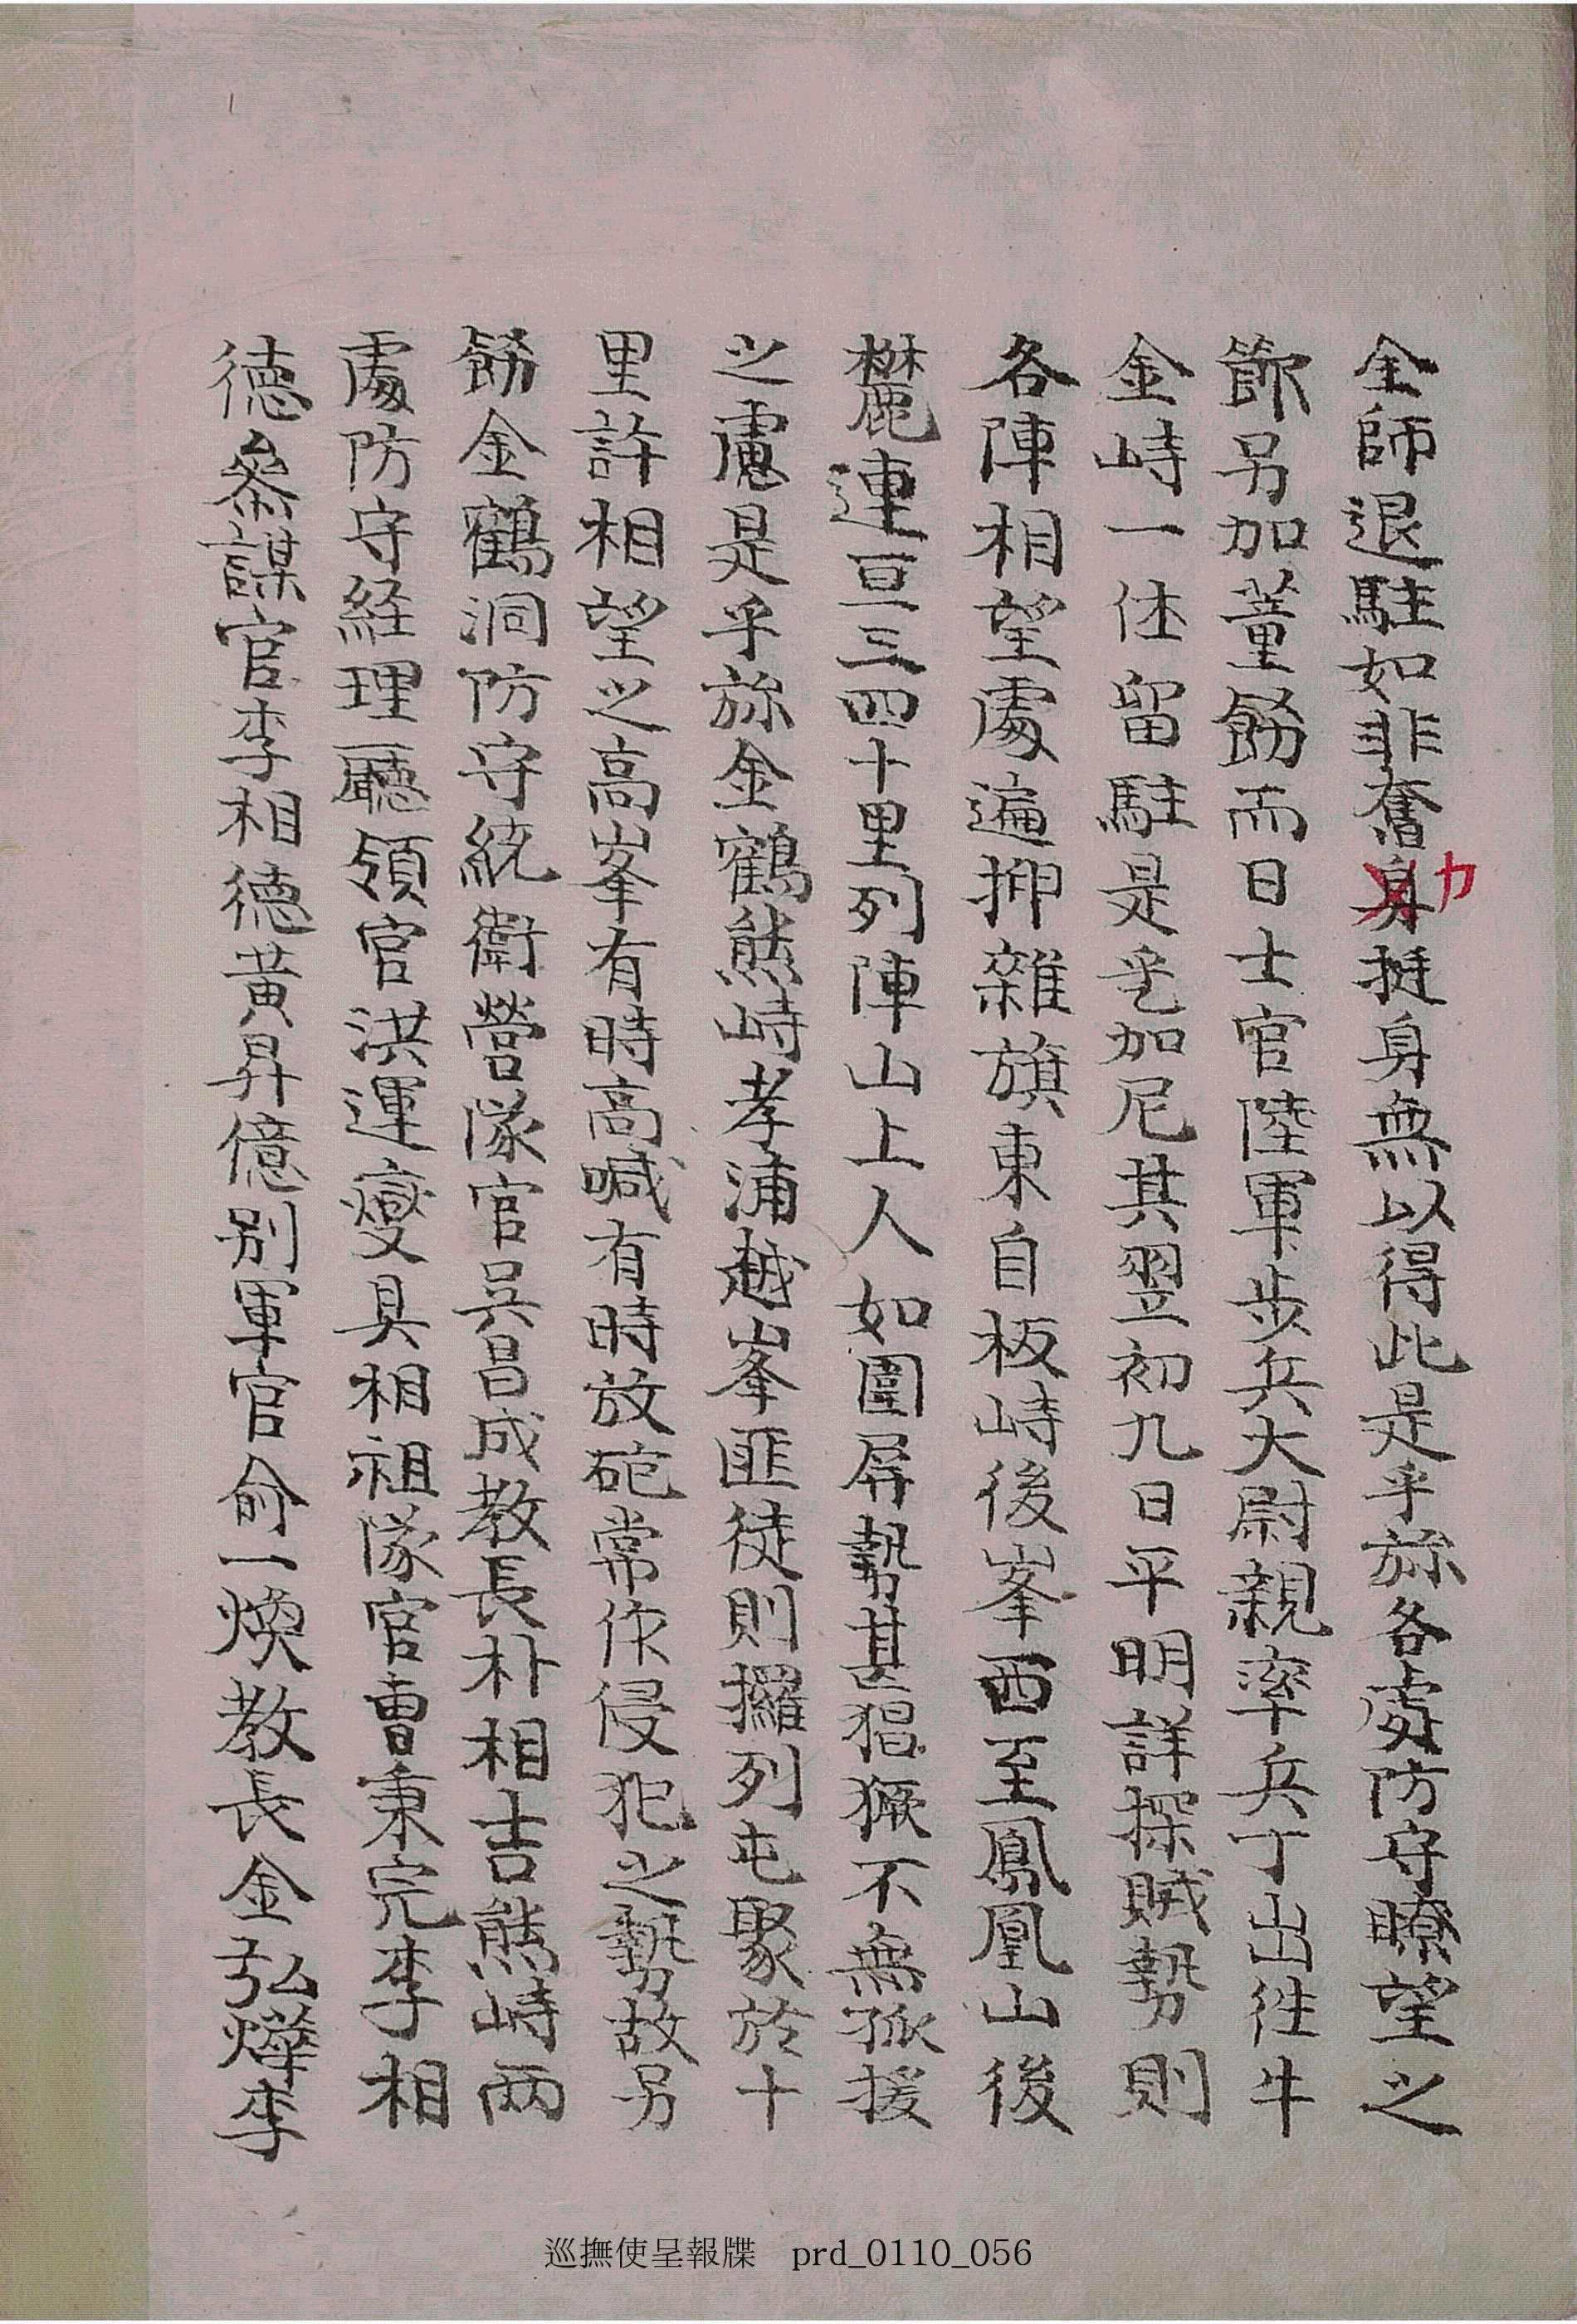 全師退駐如非奮身挺身無以得此是乎旀各處防守瞭望之
力
節另加董飭而日士官陸軍步兵大尉親率兵丁出往牛
金峙一体留駐是乎加尼其翌初九日平明詳探賊勢則
各陣相望處遍揷雜旗東自板峙後峯西至鳳凰山後
麓連亘三四十里列陣山上人如圍屏勢甚猖獗不無孤援
之慮是乎旀金鶴熊峙孝浦越峯匪徒則擺列屯聚於十
里許相望之高峯有時高喊有時放砲常作侵犯之勢故另
飭金鶴洞防守統衛營隊官吳昌成教長朴相吉熊峙兩
處防守経理廳領官洪運燮具相祖隊官曺秉完李相
德叅謀官李相德黃昇億別軍官俞一煥教長金弘燁李
巡撫使呈報牒 prd_0110_056